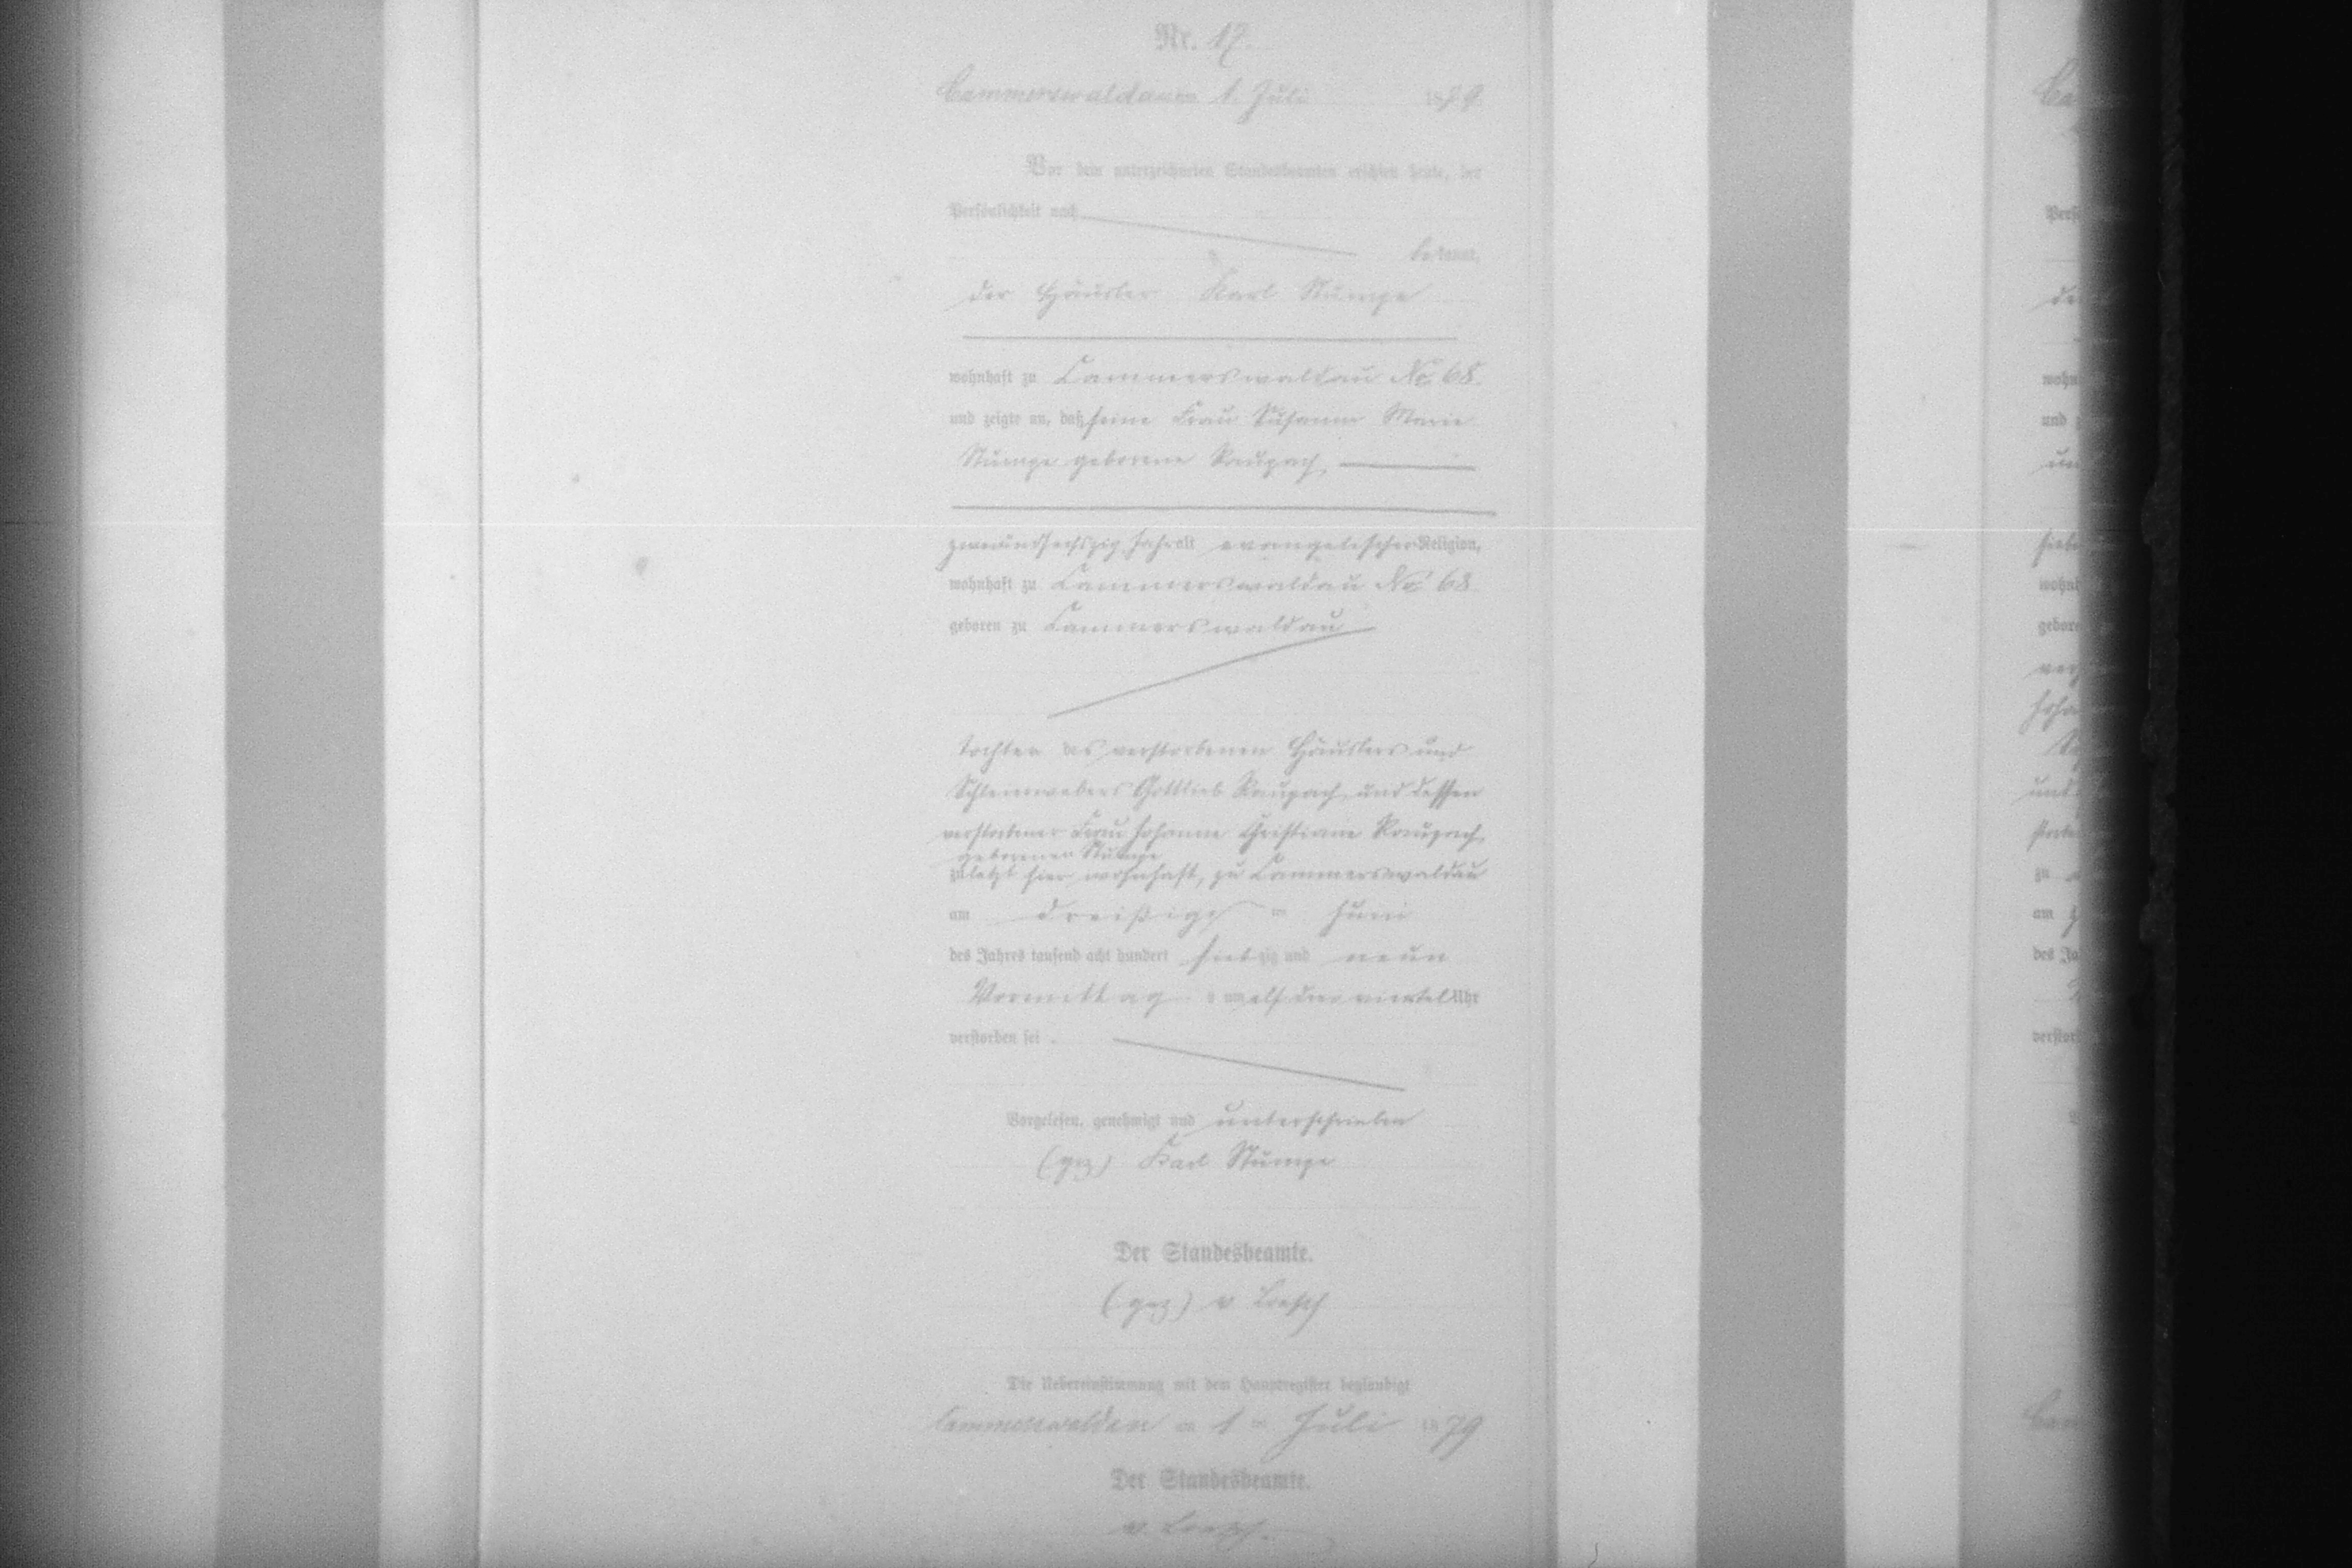 Nr. 17.
Cammerswaldau am 1. Juli 1879
Vor dem unterzeichneten Standesbeamten erschien heute, der
Persönlichkeit nach
bekannt,
der Häusler Karl Stumpe
wohnhaft zu Cammerswaldau No. 68.
und zeigte an, daß seine Frau Susanne Marie
Stumpe geborene Raupach
zweiundsechszig Jahr alt evangelischer Religion,
wohnhaft zu Cammerswaldau No. 68
geboren zu Cammerswaldau
Tochter des verstorbenen Häuslers und
Gottlieb Raupach und dessen
verstorbener Frau Johanne Christiane Raupach
geborenen Stumpe
zuletzt hier wohnhaft, zu Cammerswaldau
am dreißigsten Juni
des Jahres tausend acht hundert siebzig und neun
Vormittags um elf drei viertel Uhr
verstorben sei.
Vorgelesen, genehmigt und unterschrieben
(gez) Karl Stumpe
Der Standesbeamte.
(gez) v Loesch
Die Uebereinstimmung mit dem Hauptregister beglaubigt
Cammerswaldau am 1 ten Juli 1879
Der Standesbeamte.
v. Loesch.